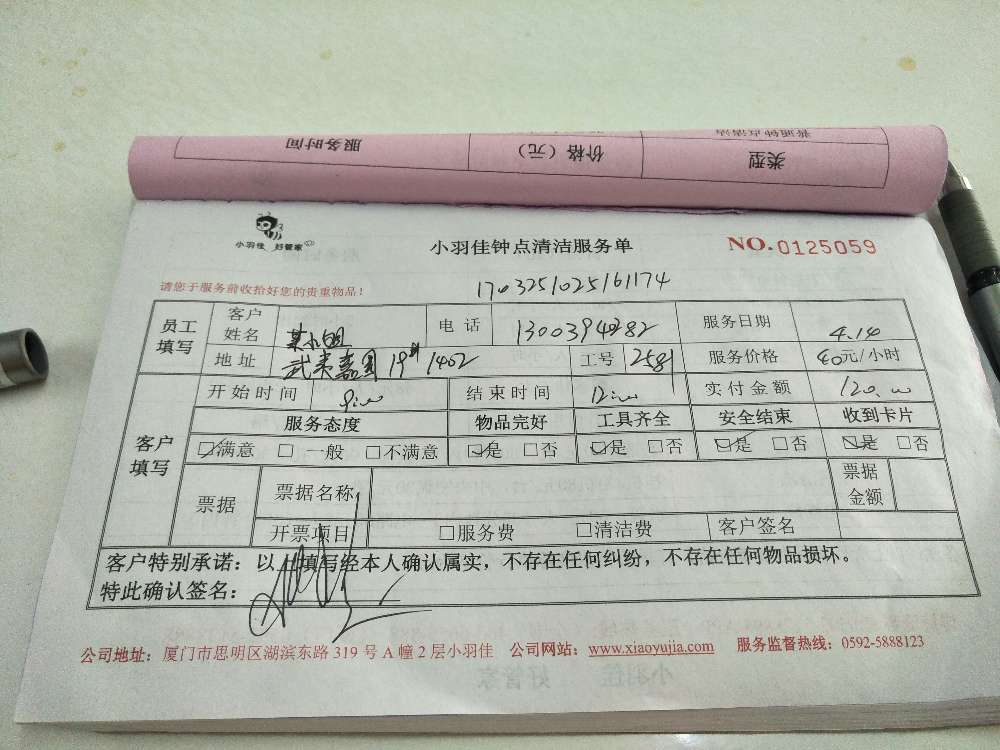 服务时间 价格（元） 类型
小羽佳 好管家
小羽佳钟点清洁服务单
NO.0125059
请您于服务前收拾好您的贵重物品！
1703251025161174
员工填写 客户姓名 电话 13003940282 服务日期 4.14
地址 19 1402 工号 2581 服务价格 40元/小时
客户填写 开始时间 9:00 结束时间 12:00 实付金额 120.00
服务态度 物品完好 工具齐全 安全结束 收到卡片
☑满意 □一般 □不满意 ☑是 □否 ☑是 □否 ☑是 □否 ☑是 □否
票据 票据名称 票据金额
开票项目 □服务费 □清洁费 客户签名
客户特别承诺：以上填写经本人确认属实，不存在任何纠纷，不存在任何物品损坏。
特此确认签名：
公司地址：厦门市思明区湖滨东路 319 号 A 幢 2 层小羽佳 公司网站：www.xiaoyujia.com 服务监督热线：0592-5888123